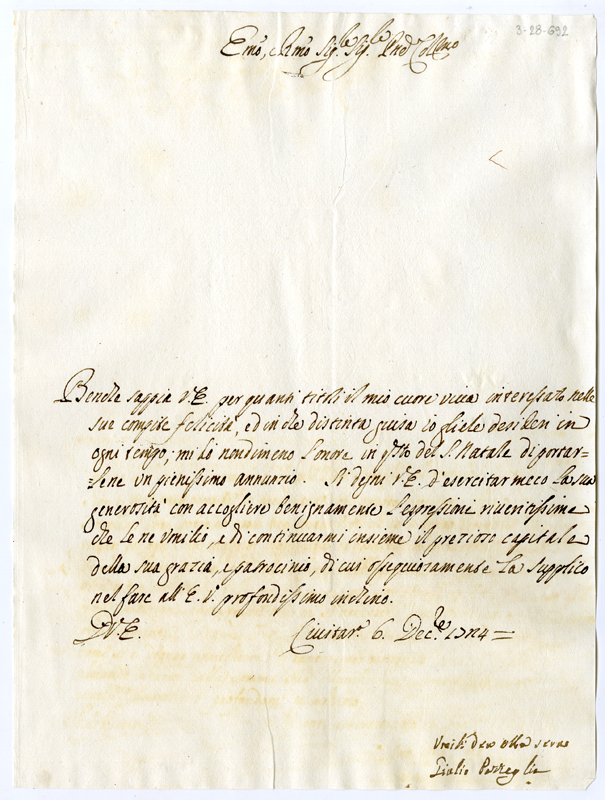 3-28-692
Emõ, e Rmõ Sig.re Sig.re Prõe Colmo
Benche sappia V.E. per quanti titoli il mio cuore viva interessato nelle
sue compite felicità, ed in che distinta guisa io gliele desideri in
ogni tempo, mi fò nondimeno l'onore in q.sto del S. Natale di portar=
=lene un pienissimo annunzio. Si degni V.E. d'esercitar meco la sua
generosità con accogliere benignamente l'espressioni riverentissime
che le ne umilio, e di continuarmi insieme il prezioso capitale
della sua grazia, e patrocinio, di cui ossequiosamente La supplico
nel fare all'E.V. profondissimo inchino.
D.V.E. Civitav.a 6. Dec.re 1724=
Umil.
Giulio